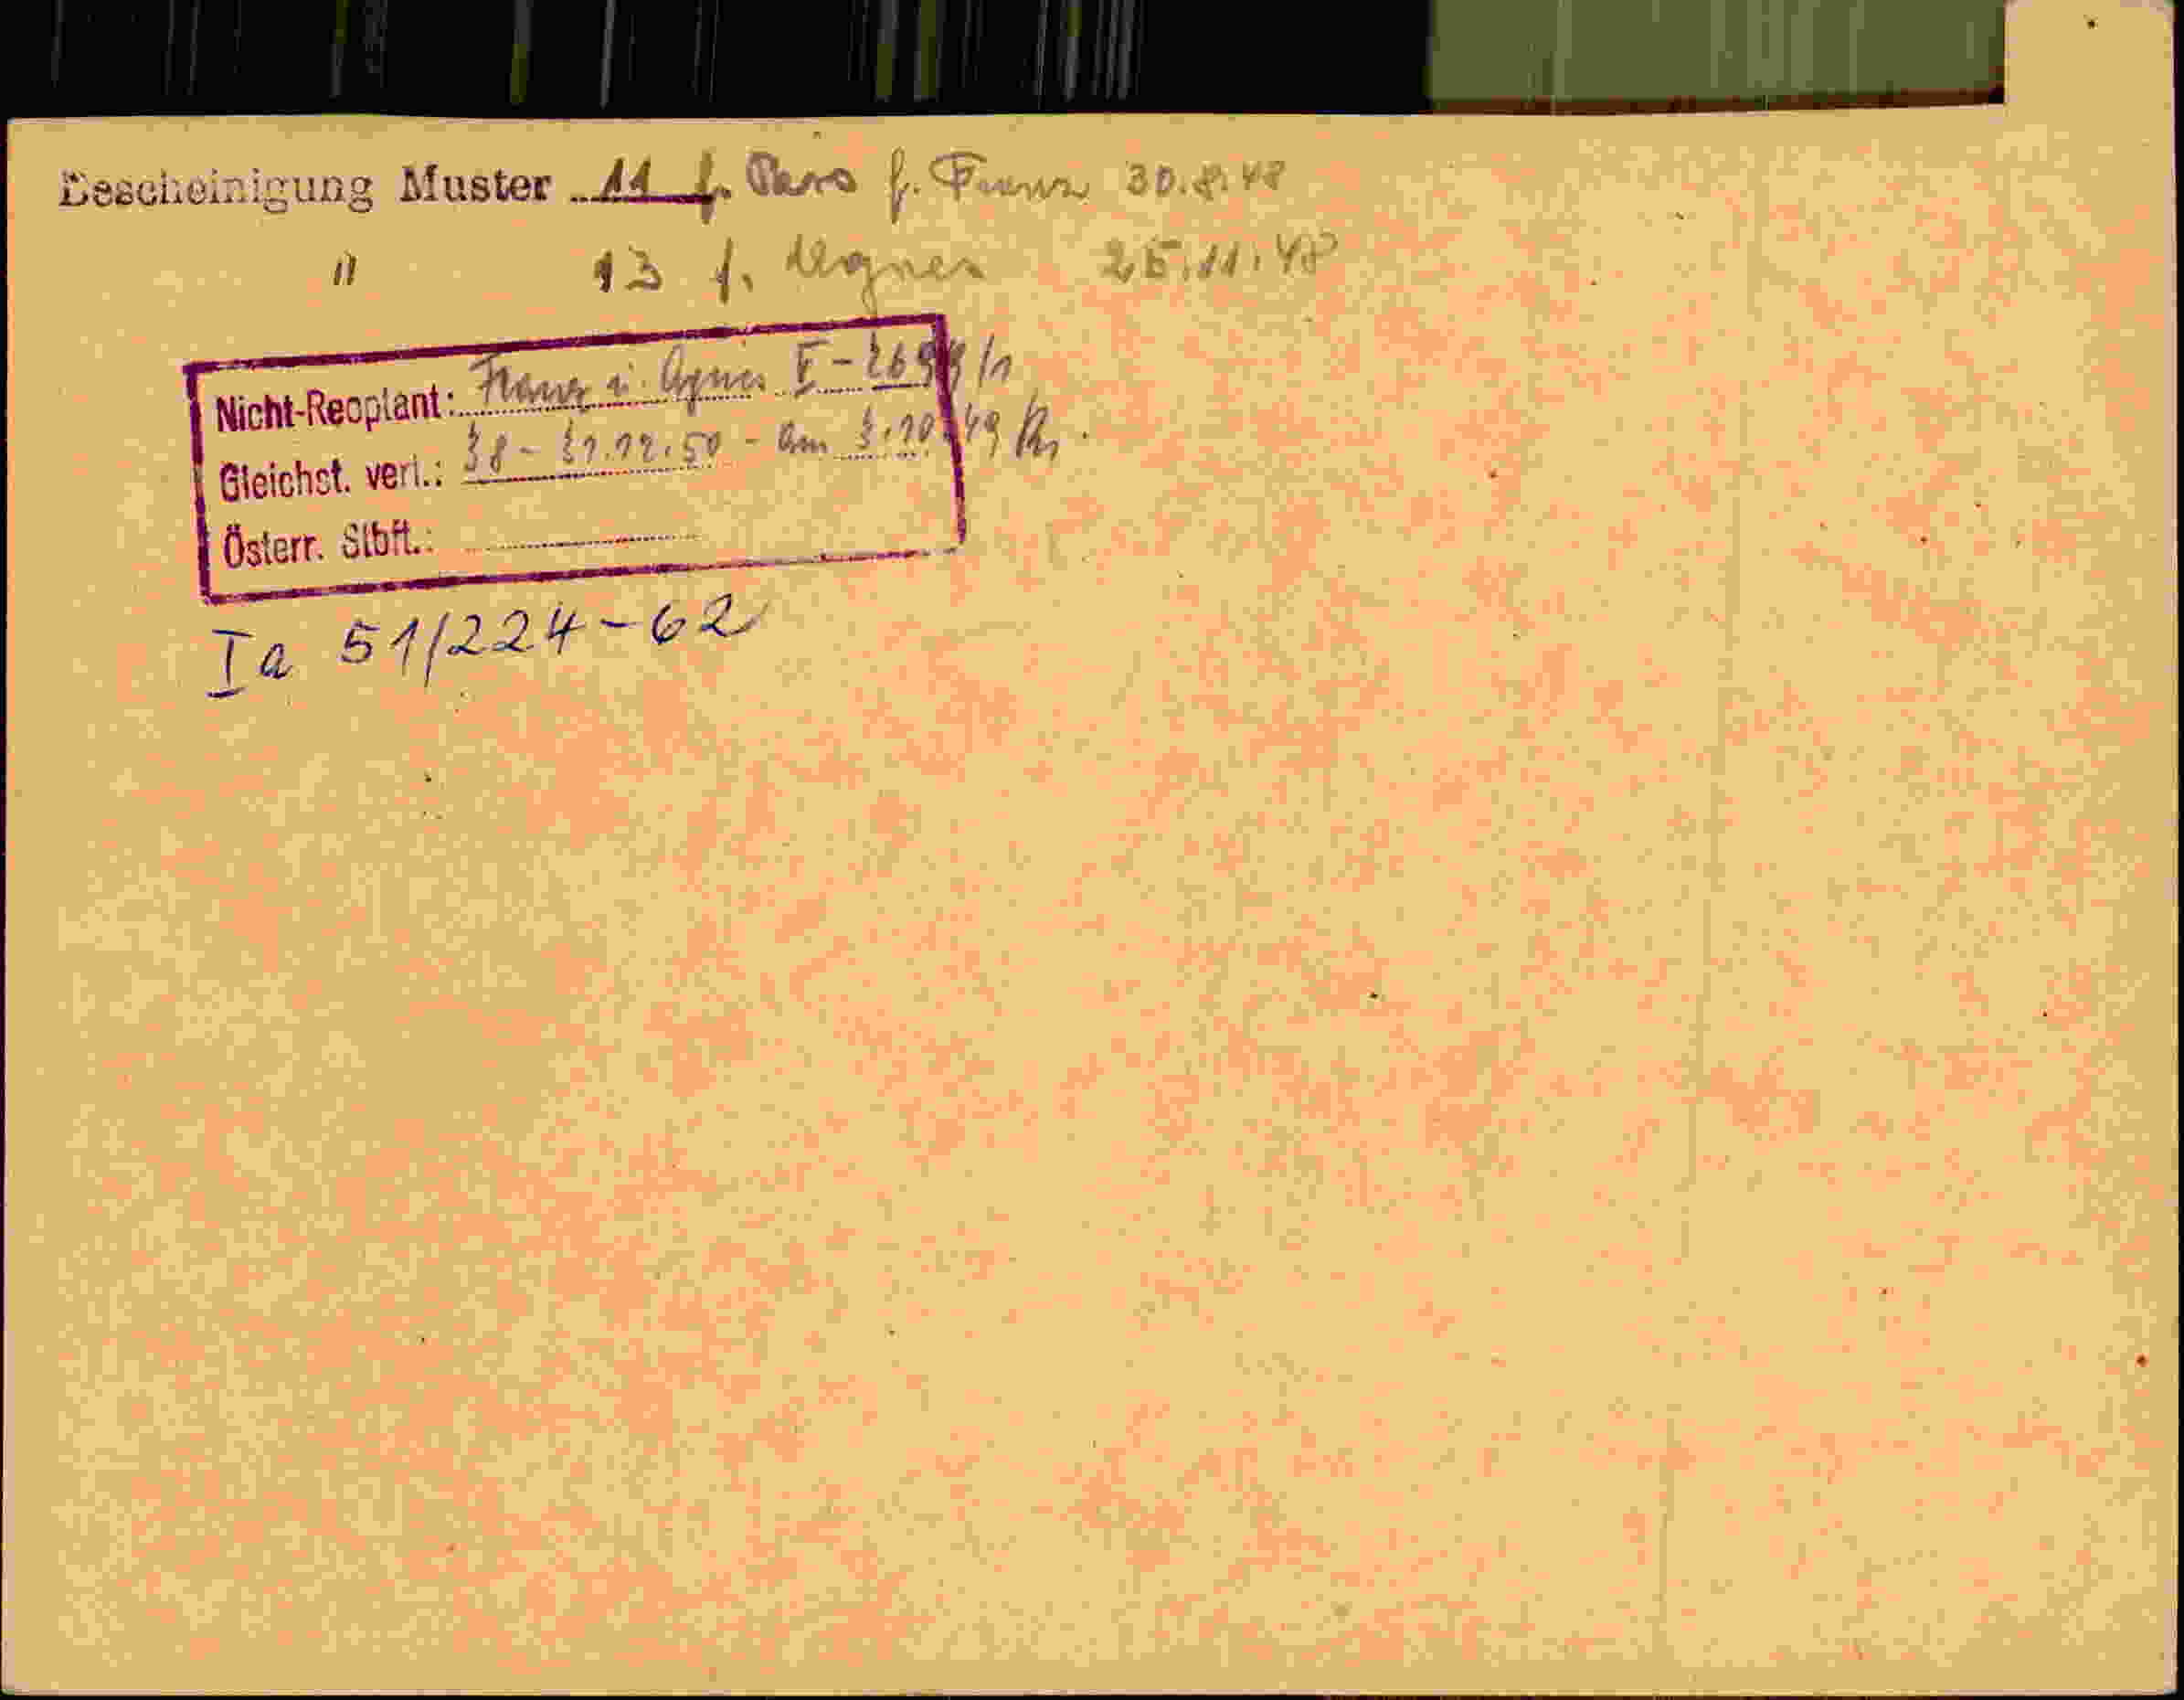 Bescheinigung Muster 11 f. Pass f. Franz 30.8.48
" 13 f. Agnes 25.11.48
Nicht-Reoptant: Franz u. Agnes V-2699/1
Gleichst. verl.: 38 - 31.12.50 - am 3.10.49
Österr. Stbft.:
Ia 51/224-62